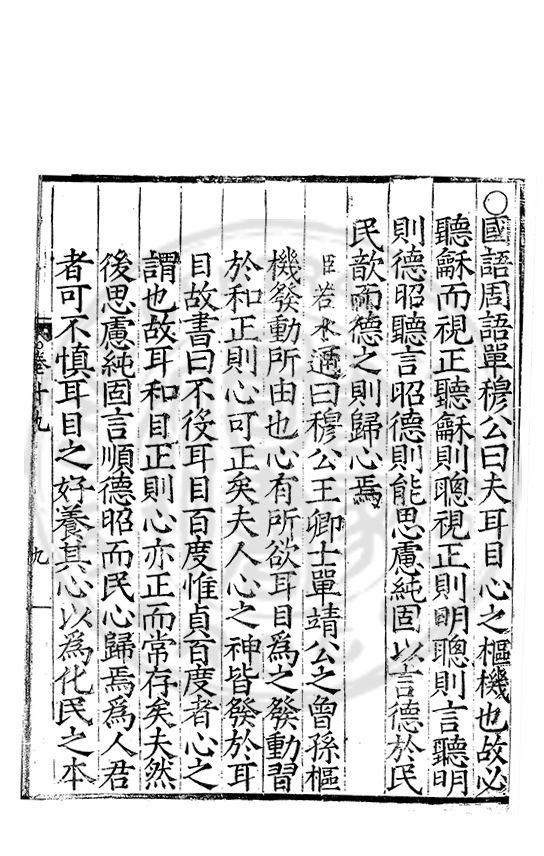 ○國語周語單穆公曰夫耳目心之樞機也故必
聽龢而視正聽龢則聰視正則明聰則言聽明
則德昭聽言昭德則能思慮純固以言德於民
民歆而德之則歸心焉
臣若水通曰穆公王卿士單靖公之曾孫樞
機發動所由也心有所欲耳目爲之發動習
於和正則心可正矣夫人心之神皆發於耳
目故書曰不役耳目百度惟貞百度者心之
謂也故耳和目正則心亦正而常存矣夫然
後思慮純固言順德昭而民心歸焉爲人君
者可不慎耳目之好養其心以爲化民之本
卷十九
九